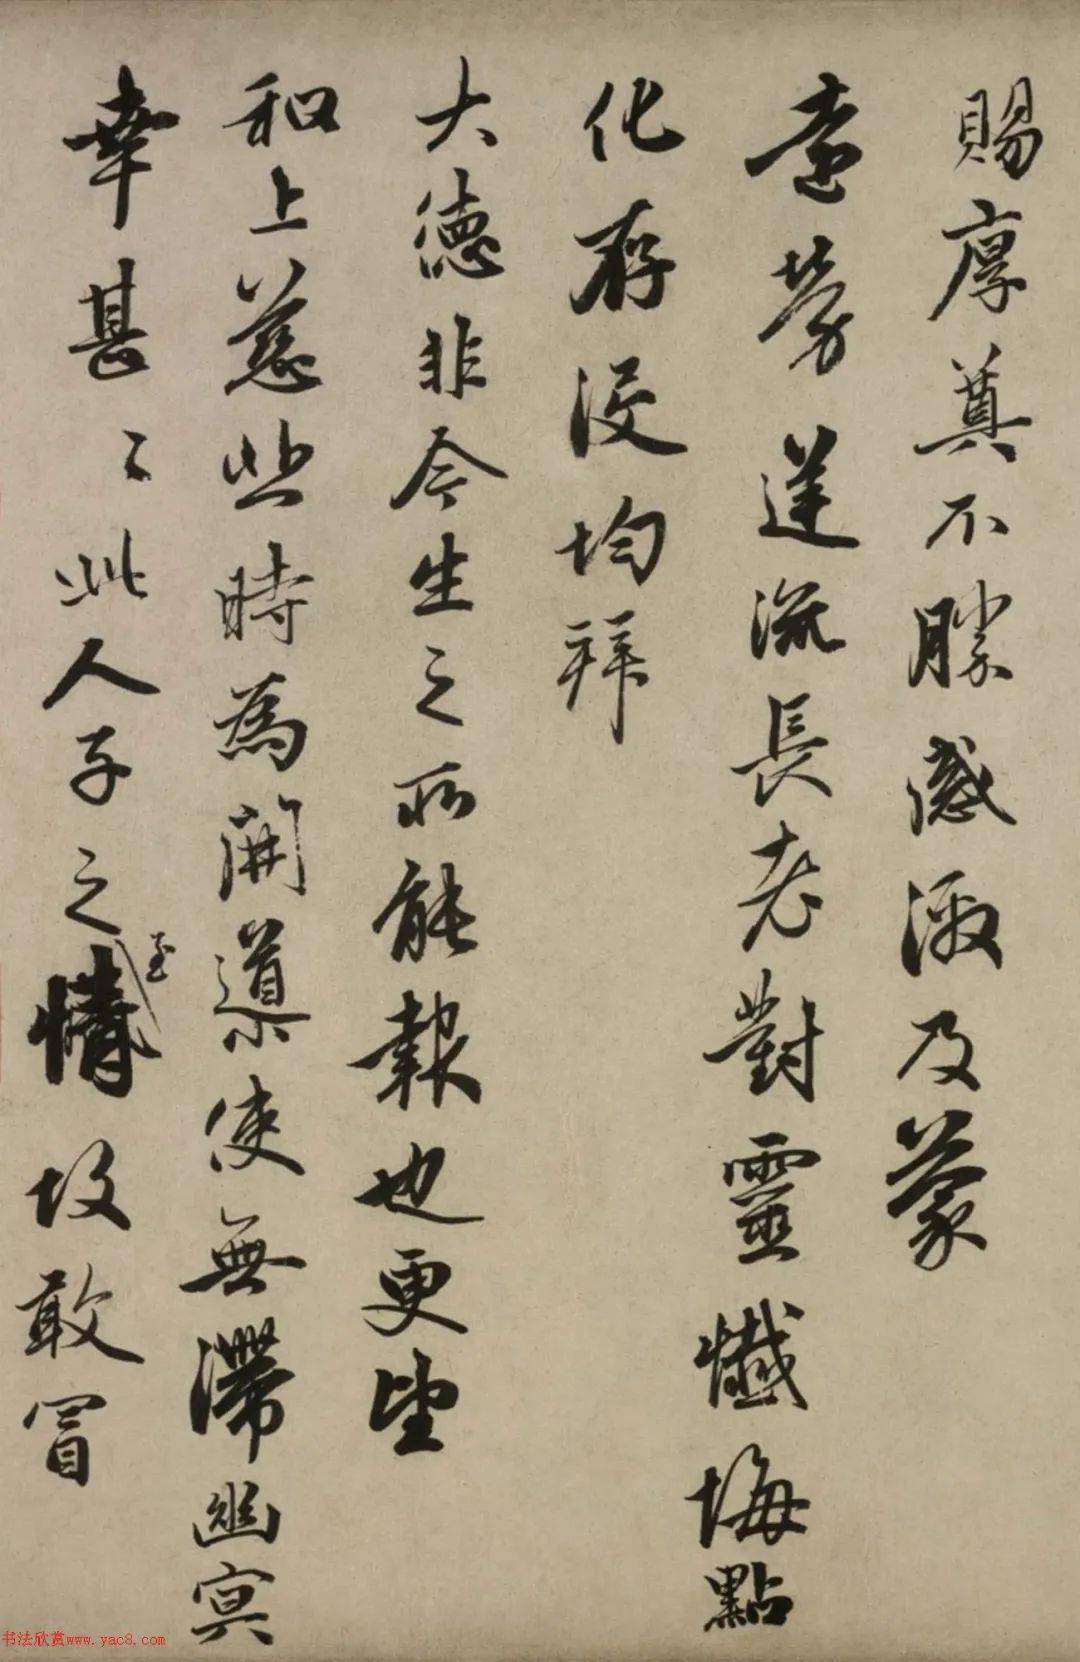 賜厚奠不勝感激及蒙
遠勞蓬流長老對靈懺悔點
化存没均拜
大德非今生之所能報也更望
和上慈悲時為開導使無滯幽冥
幸甚〻此人子之情至故敢冒
书法欣赏www.yac8.com